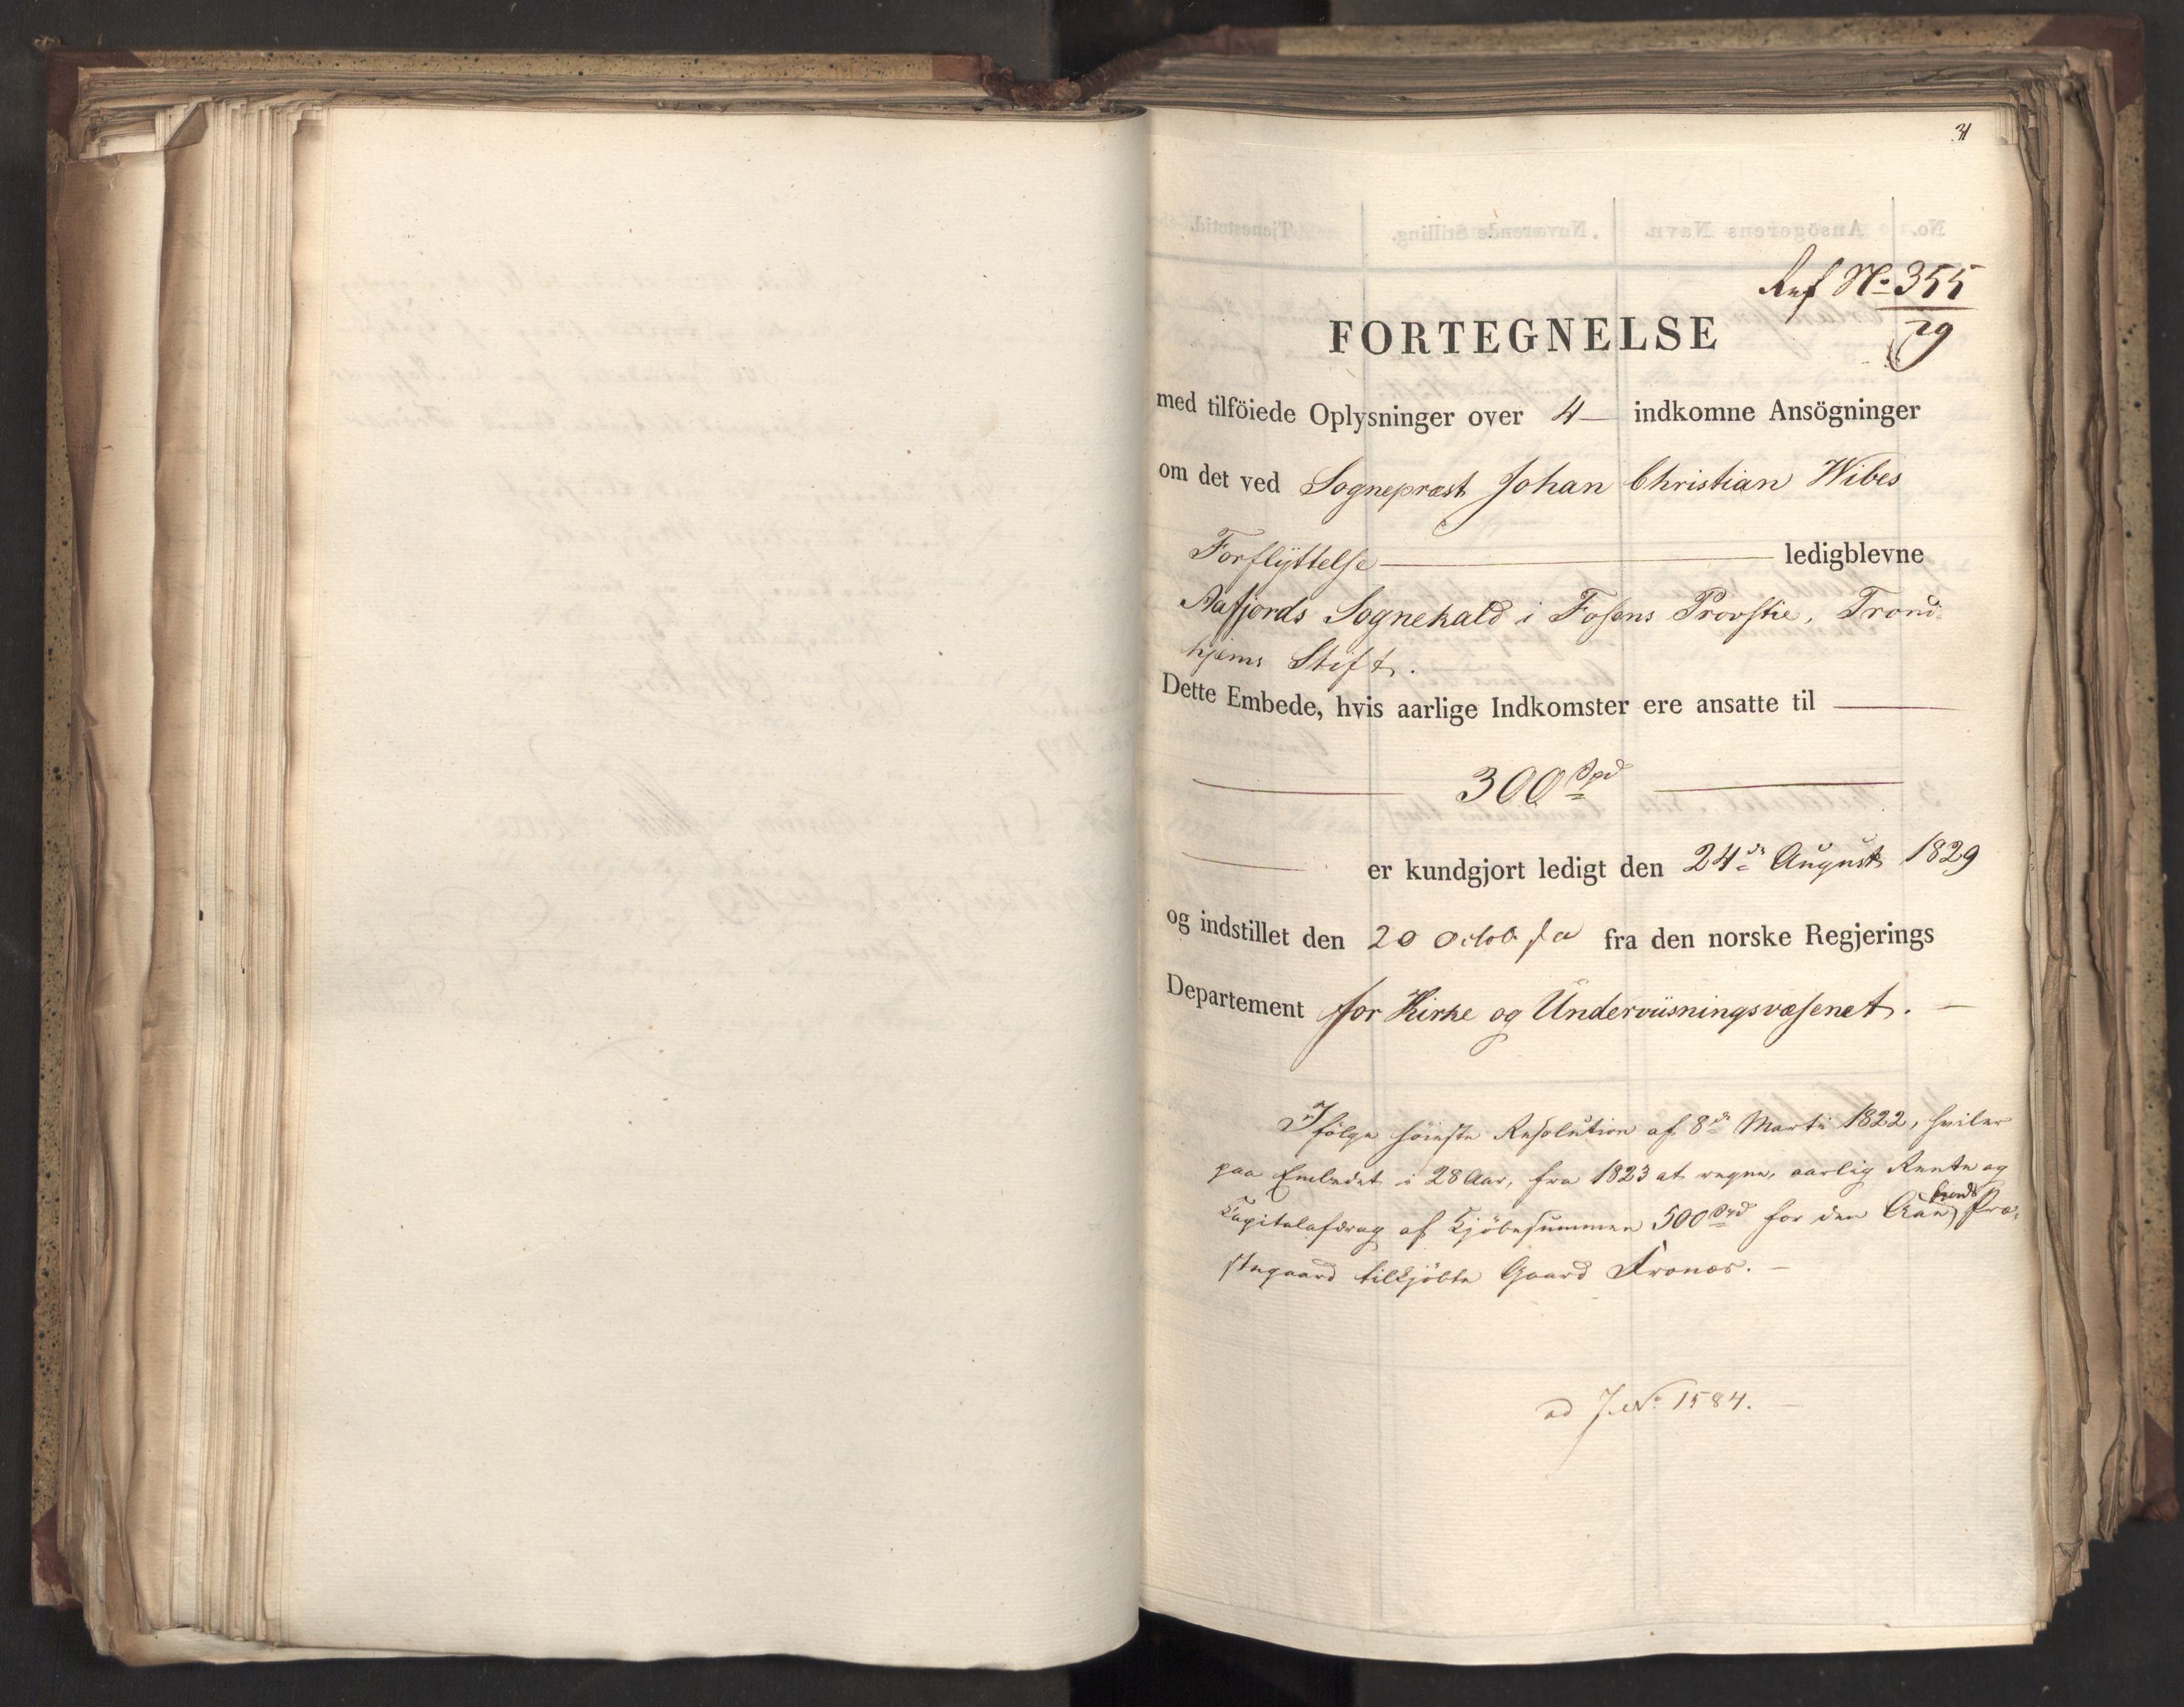 31
Ref No 355
29
FORTEGNELSE
med tilföiede Oplysninger over 4 — indkomne Ansögninger
om det ved Sognepræst Johan Christian Wibes
Forflÿttelse — ledigblevne
Aafjords Sognekald i Fosens Provstie, Trond-
hjems Stift.
Dette Embede, hvis aarlige Indkomster ere ansatte til —
— 300 Spd —
— er kundgjort ledigt den 24de August 1829
og indstillet den 20 Octob s a fra den norske Regjerings
Departement for Kirke og Underviisningsvæsenet. —
Ifölge höieste Resolution af 8de Marts 1822, hviler
paa Embedet i 28 Aar, fra 1823 at regne, aarlig Rente og
Capitalafdrag af Kjöbesummen 500 Spd for den Præ-
stegaard tilkjöbte Gaard Fronæs. —
ad J. No 1584. —